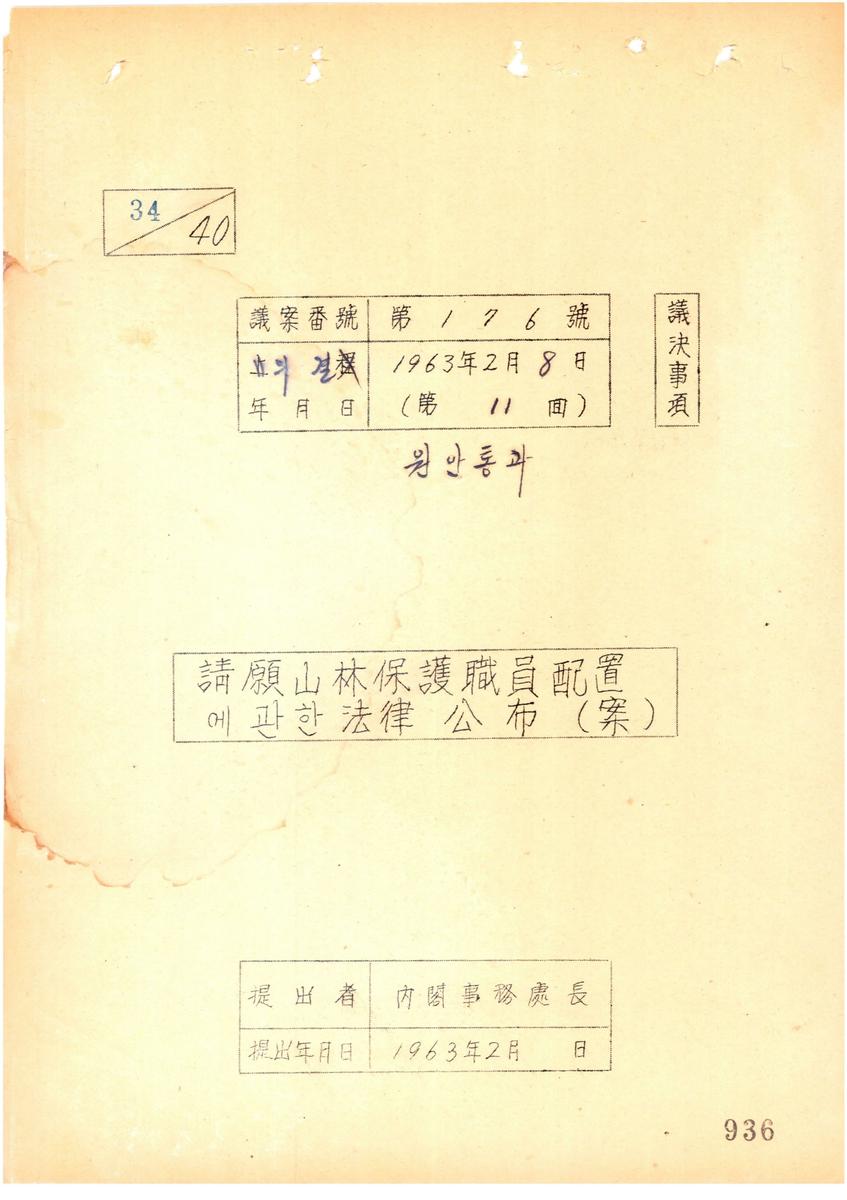 34
40
議案番號 第 1 7 6 號
의결 1963年2月 8日
年月日 (第 11 回)
議決事項
원안통과
請願山林保護職員配置
에관한法律 公布 (案)
提出者 內閣事務處長
提出年月日 1963年2月 日
936